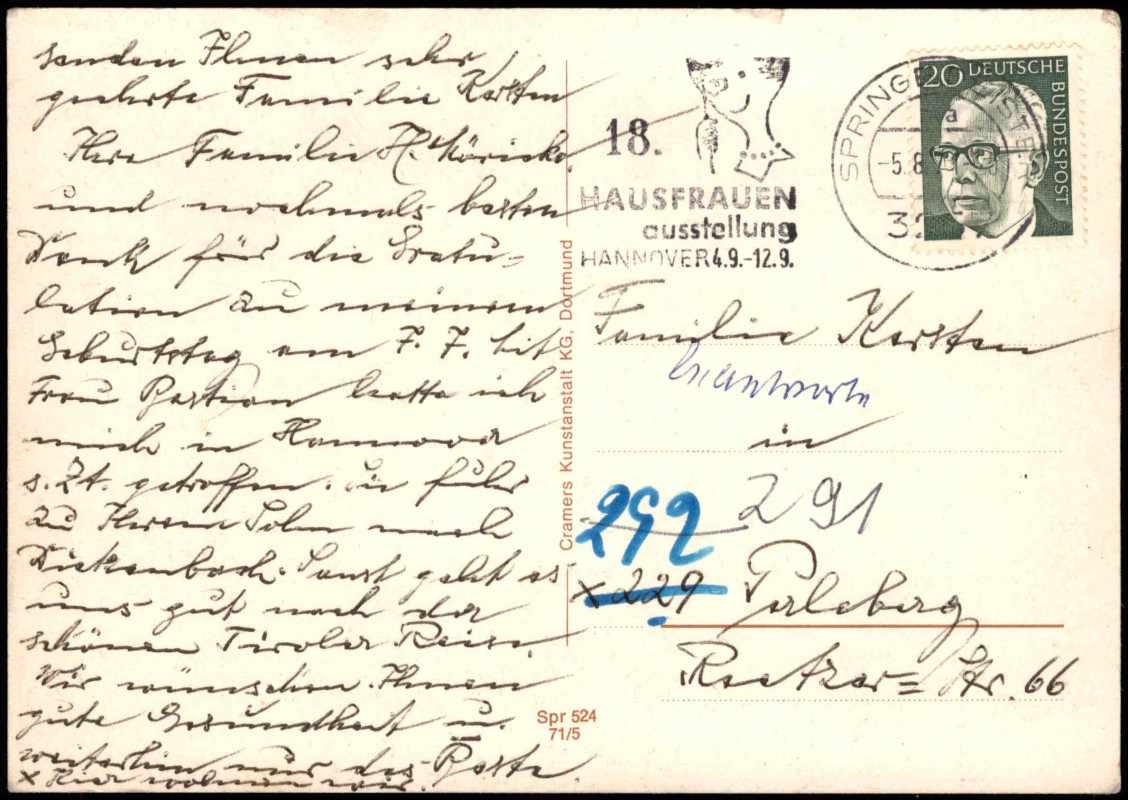 senden Ihnen sehr
geehrte Familie Kersten
Ihre Familie H.
und nochmals besten
Dank für die Gratu-
lation zu meinem
Geburtstag am 7. 7. Mit
Frau Bastian hatte ich
mich in Hannover
s. Zt. getroffen. Sie fuhr
zu Ihrem Sohn nach
Dickenbach. Sonst geht es
uns gut nach der
schönen Tiroler Reise.
Wir wünschen Ihnen
gute Gesundheit u.
weiterhin nur das Beste.
x Hier wohnen wir.
Cramers Kunstanstalt KG, Dortmund
Spr 524
71/5
18.
HAUSFRAUEN
ausstellung
HANNOVER 4.9.-12.9.
SPRINGE
a
-5.8.
20 DEUTSCHE
BUNDESPOST
Familie Kersten
beantwortet
in
291
292
x 229 Perleberg
Reetzer= Str. 66